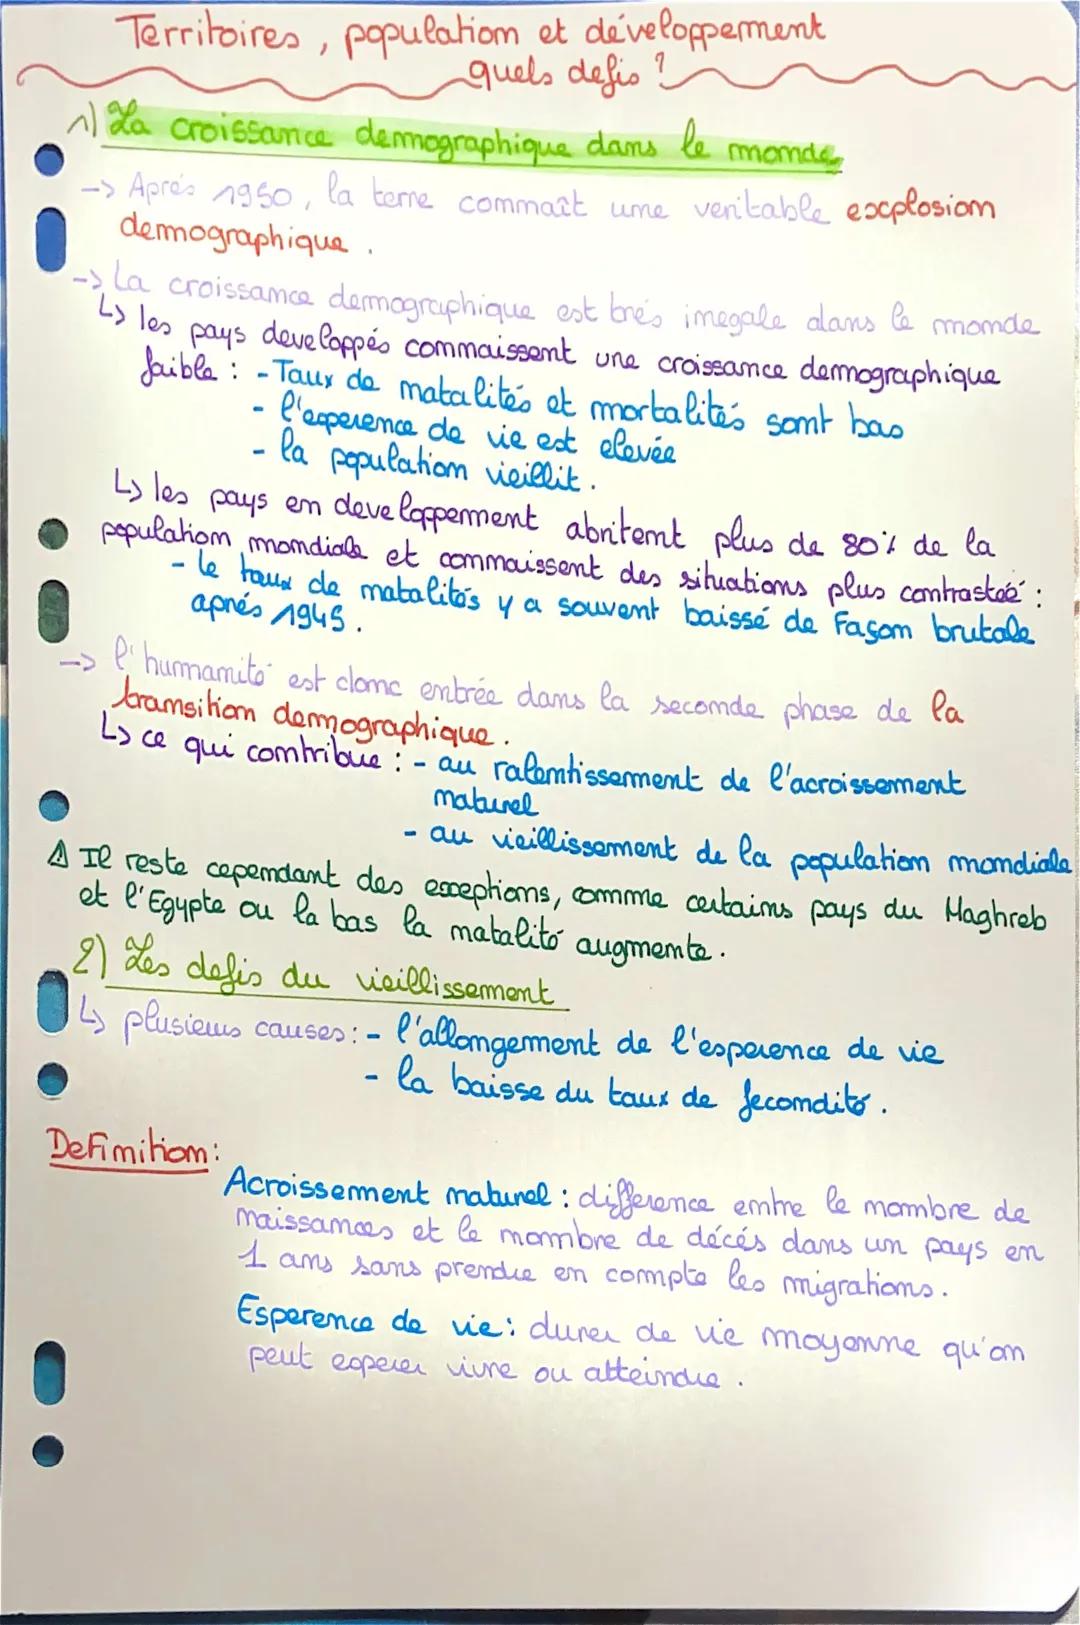 Territoires, population et développement
quels defis ?
1) La croissance demographique dans le monde
-> Aprés 1950, la terre connaît une veritable explosion
demographique.
-> La croissance demographique est trés inegale dans le monde
↳ les pays developpés connaissent une croissance demographique
faible : - Taux de natalités et mortalités sont bas
- l'esperence de vie est elevée
- la population vieillit.
↳ les pays en developpement abritent plus de 80% de la
population mondiale et connaissent des situations plus contrasteé :
- le taux de natalités y a souvent baissé de façon brutale
aprés 1945.
-> l'humanité est donc entrée dans la seconde phase de la
transition demographique.
↳ ce qui contribue : - au ralentissement de l'acroissement
naturel
- au vieillissement de la population mondiale
⚠ Il reste cependant des exceptions, comme certains pays du Maghreb
et l'Egypte ou la bas la natalité augmente.
2) Les defis du vieillissement
↳ plusieurs causes : - l'allongement de l'esperence de vie
- la baisse du taux de fecondité.
Definition :
Acroissement naturel : difference entre le nombre de
naissances et le nombre de décés dans un pays en
1 ans sans prendre en compte les migrations.
Esperence de vie : durer de vie moyenne qu'on
peut esperer vivre ou atteindre.